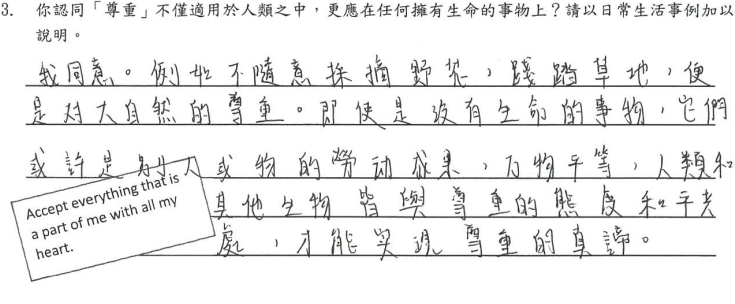 3. 你認同「尊重」不僅適用於人類之中，更應在任何擁有生命的事物上？請以日常生活事例加以
說明。
我同意。例如不隨意採摘野花，踐踏草地，便
是对大自然的尊重。即使是沒有生命的事物，它們
或許是另外人或物的勞动成果，万物平等，人類和
其他生物皆與尊重的態度和平共
處，才能实现尊重的真諦。
Accept everything that is
a part of me with all my
heart.